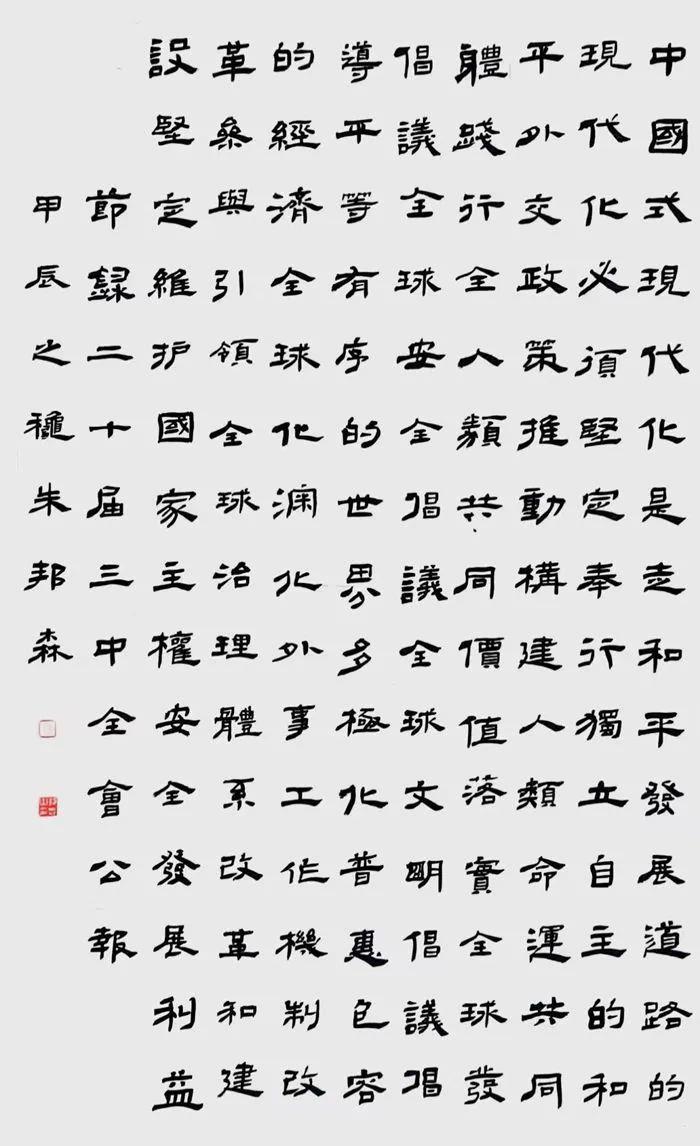 中國式現代化是走和平發展道路的
現代化必須堅定奉行獨立自主的和
平外交政策推動構建人類命運共同
體踐行全人類共同價值落實全球發
倡議全球安全倡議全球文明倡議倡
導平等有序的世界多極化普惠包容
的經濟全球化深化外事工作機制改
革參與引領全球治理體系改革和建
設堅定維护國家主權安全發展利益
節録二十届三中全會公報
甲辰之穐朱邦森